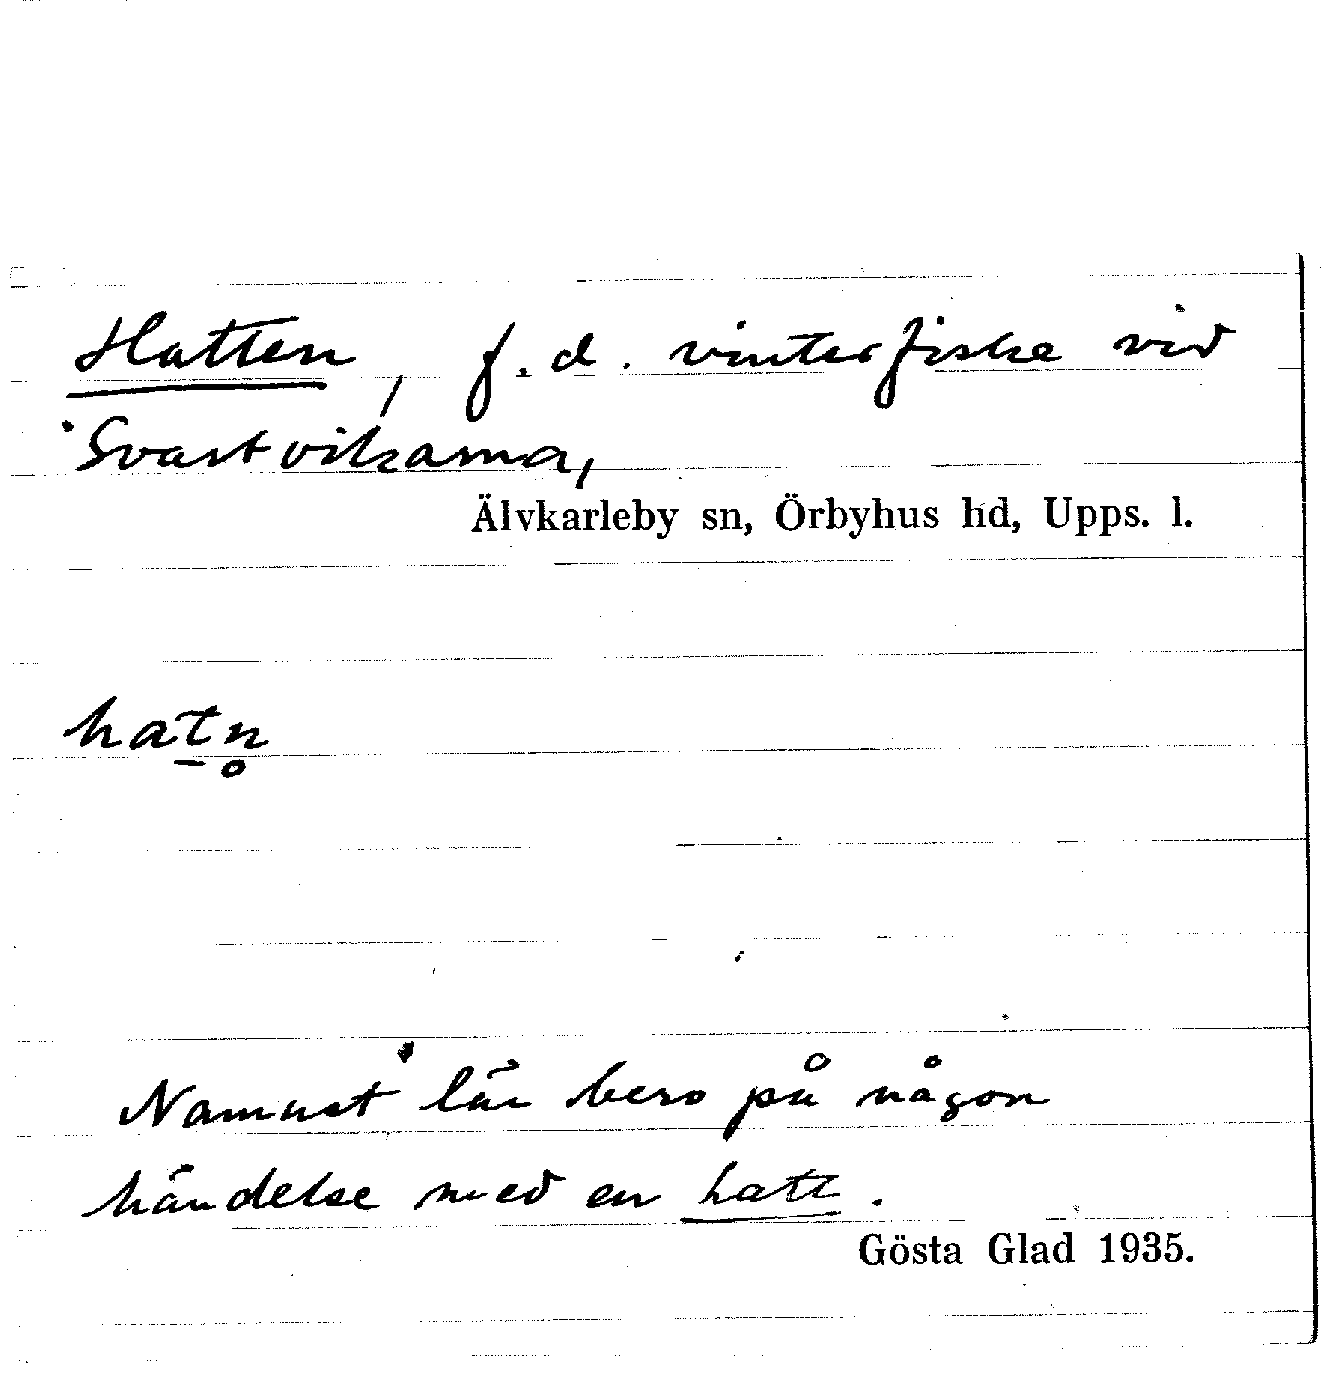 Hatten, f.d. vinterfiske vid
Svartvikarna,
Älvkarleby sn, Örbyhus hd, Upps. l.
hat̠n̥
Namnet lär bero på någon
händelse med en hatt.
Gösta Glad 1935.